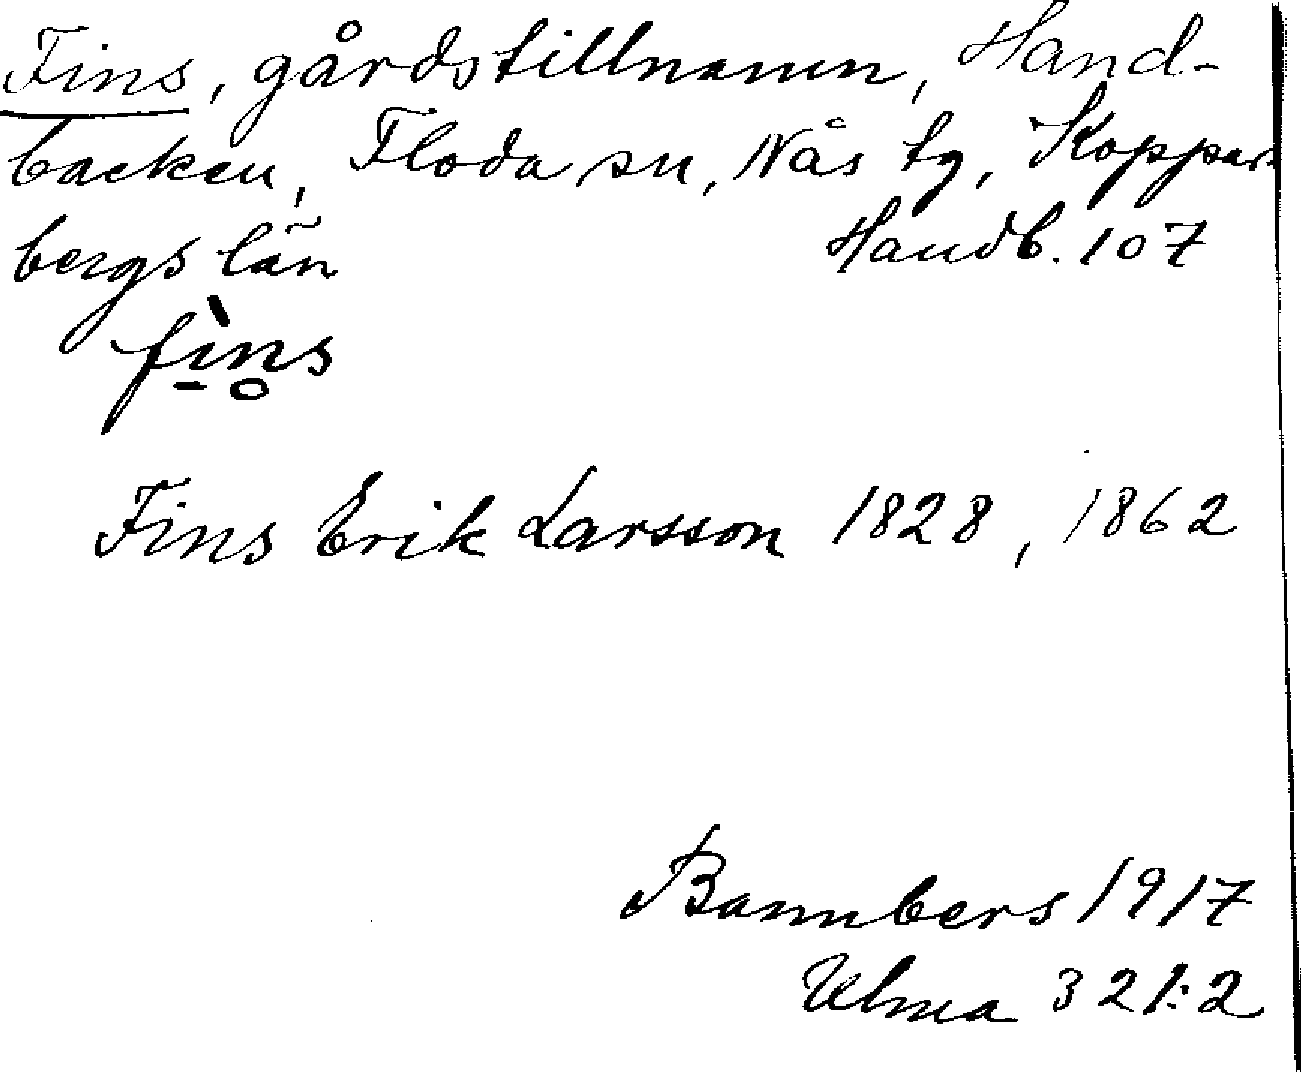 Fins, gårdstillnamn, Hand-
backen, Floda sn, Nås tg, Koppar-
bergs län Handb. 107
fı̠̀n̥s
Fins Erik Larsson 1828, 1862
Bannbers 1917
Ulma 321:2